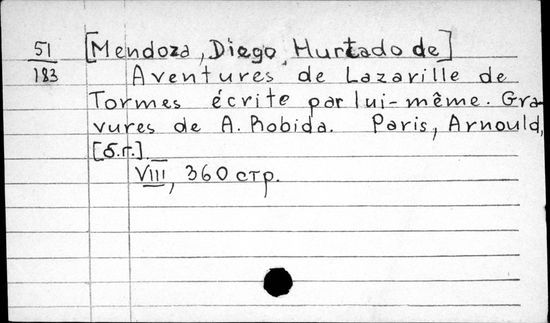 51
183
[Mendoza, Diego Hurtado de]
Aventures de Lazarille de
Tormes écrite par lui-même. Gra-
vures de A. Robida. Paris, Arnould,
[б.г.].
VIII, 360 стр.